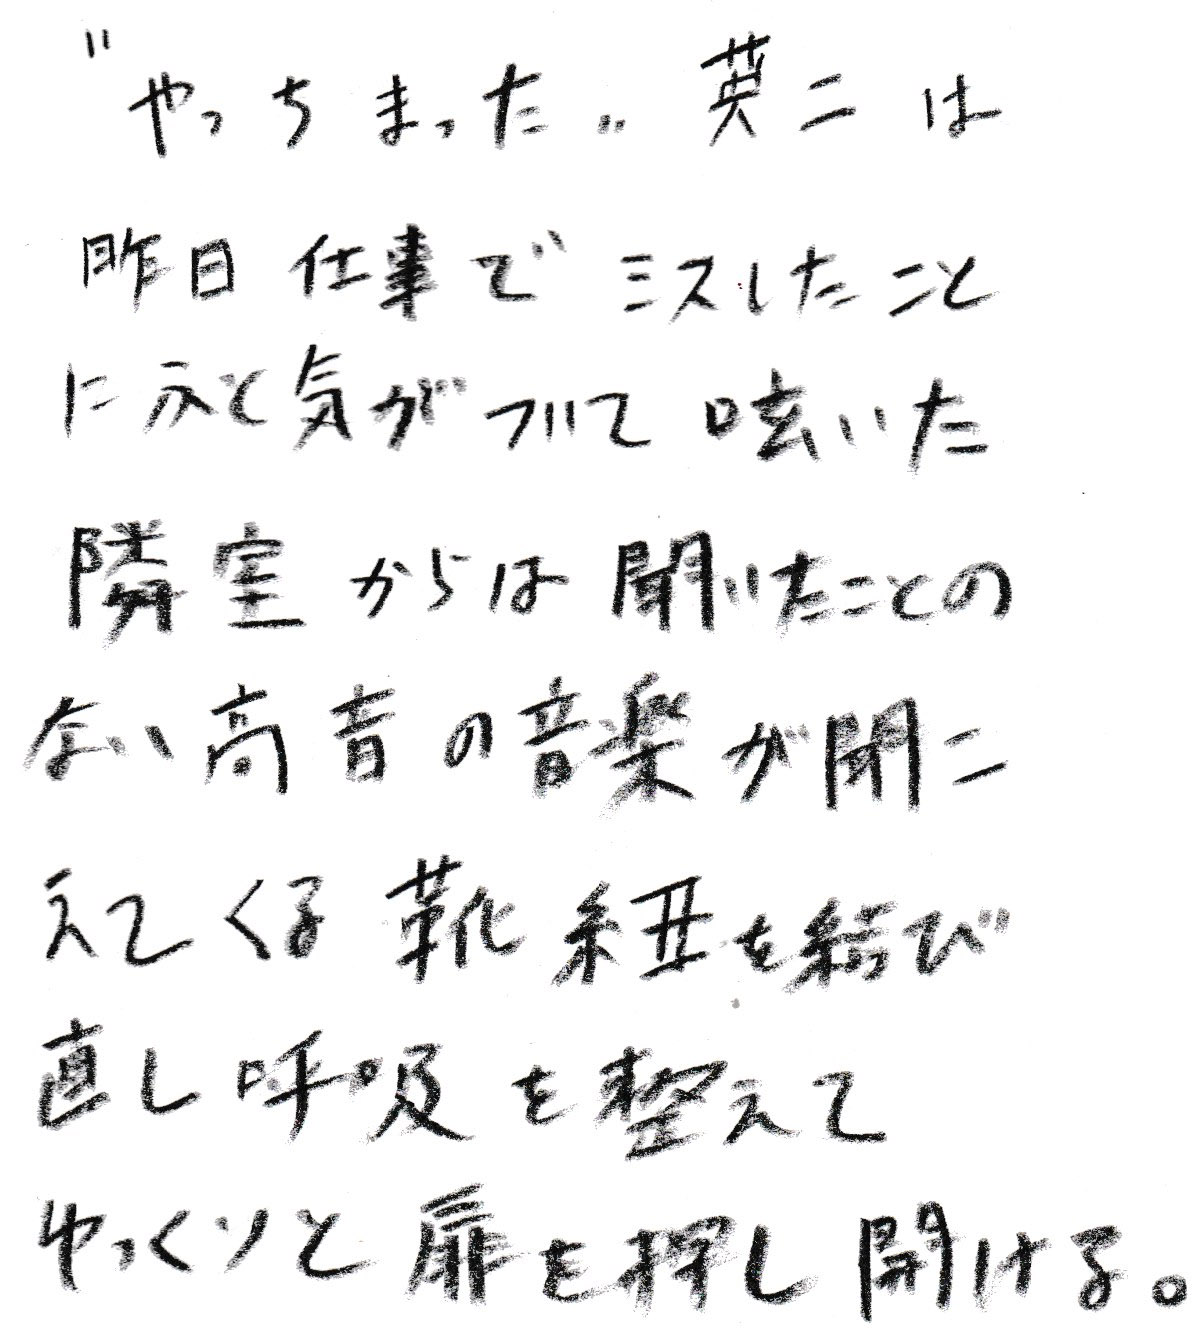 "やっちまった„ 英二は
昨日仕事でミスしたこと
にふと気がついて呟いた
隣室からは聞いたことの
ない高音の音楽が聞こ
えてくる靴紐を結び
直し呼吸を整えて
ゆっくりと扉を押し開ける。